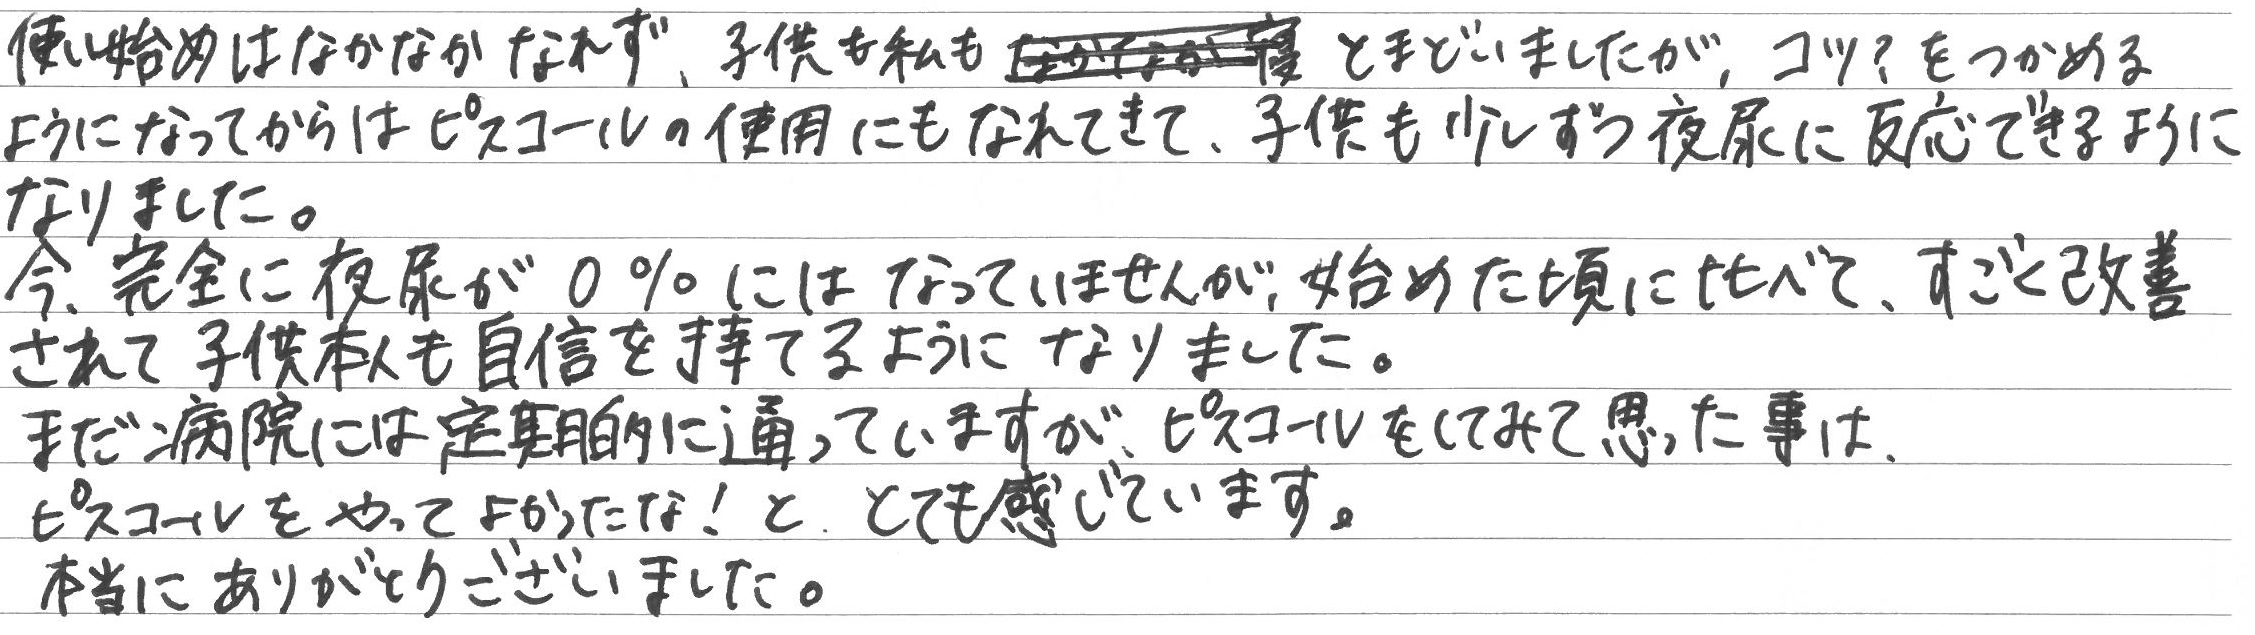 使い始めはなかなかなれず、子供も私もとまどいましたが、コツ？をつかめる
ようになってからはピスコールの使用にもなれてきて、子供も少しずつ夜尿に反応できるように
なりました。
今、完全に夜尿が0％にはなっていませんが、始めた頃に比べて、すごく改善
されて子供本人も自信を持てるようになりました。
まだ病院には定期的に通っていますが、ピスコールをしてみて思った事は、
ピスコールをやってよかったな！と、とても感じています。
本当にありがとうございました。